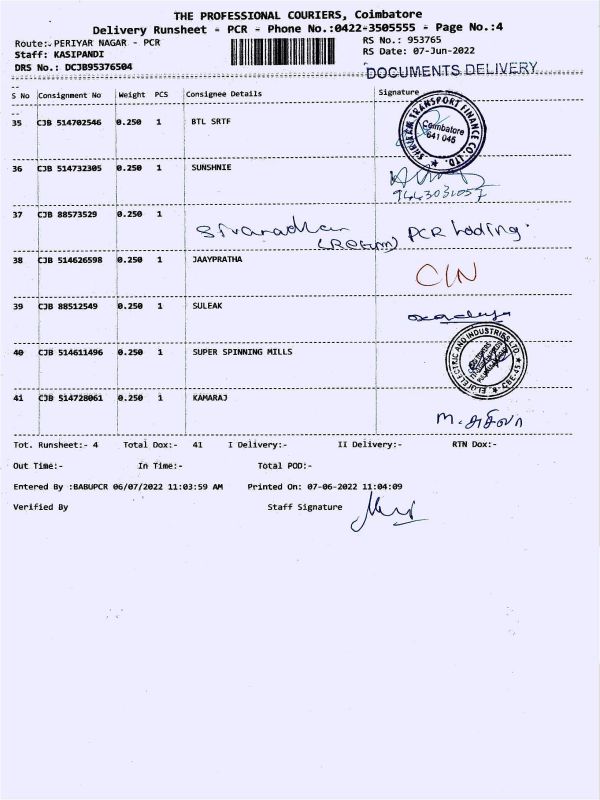 THE PROFESSIONAL COURIERS, Coimbatore
Delivery Runsheet - PCR - Phone No.:0422-3505555 - Page No.:4
Route:- PERIYAR NAGAR - PCR RS No.: 953765
Staff: KASIPANDI RS Date: 07-Jun-2022
DRS No.: DCJB95376504 DOCUMENTS DELIVERY
S No Consignment No Weight PCS Consignee Details Signature
35 CJB 514702546 0.250 1 BTL SRTF
SHRIRAM TRANSPORT FINANCE CO. LTD.
Coimbatore
641 045
36 CJB 514732305 0.250 1 SUNSHNIE
9443031057
37 CJB 88573529 0.250 1
PCR holding
38 CJB 514626598 0.250 1 JAAYPRATHA
C/N
39 CJB 88512549 0.250 1 SULEAK
40 CJB 514611496 0.250 1 SUPER SPINNING MILLS
ELGI ELECTRIC AND INDUSTRIES LTD.
41 CJB 514728061 0.250 1 KAMARAJ
Tot. Runsheet:- 4 Total Dox:- 41 I Delivery:- II Delivery:- RTN Dox:-
Out Time:- In Time:- Total POD:-
Entered By :BABUPCR 06/07/2022 11:03:59 AM Printed On: 07-06-2022 11:04:09
Verified By Staff Signature